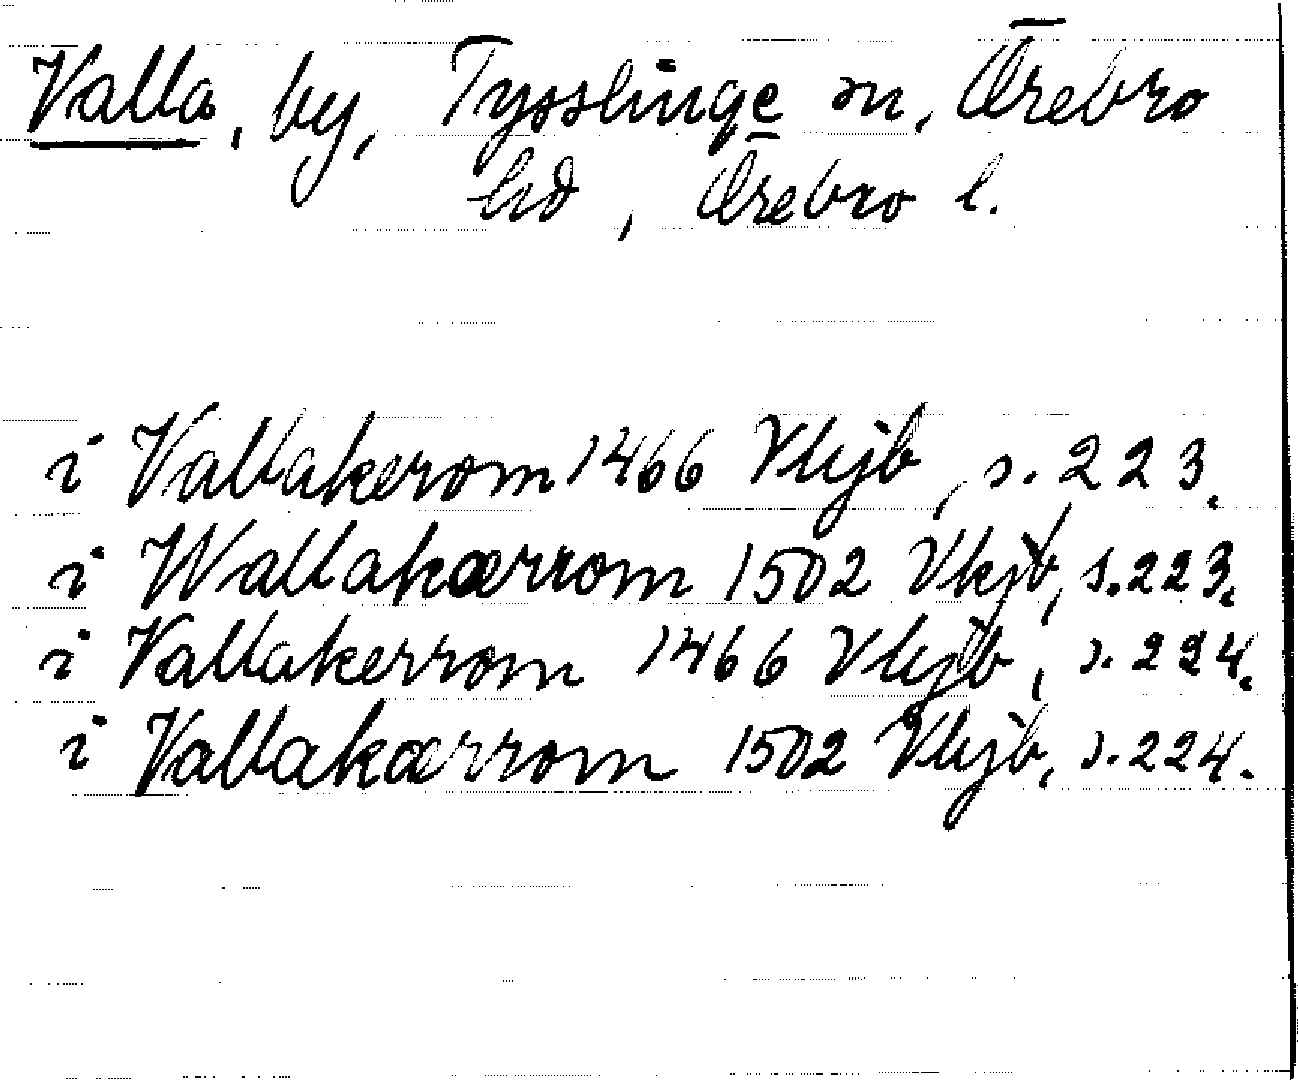 Valla, by, Tysslinge sn, Örebro
hd, Örebro l.
i Vallakerom 1466 Vkjb, s. 223.
i Wallakærrom 1502 Vkjb, s. 223.
i Vallakerrom 1466 Vkjb, s. 224.
i Vallakærrom 1502 Vkjb, s. 224.